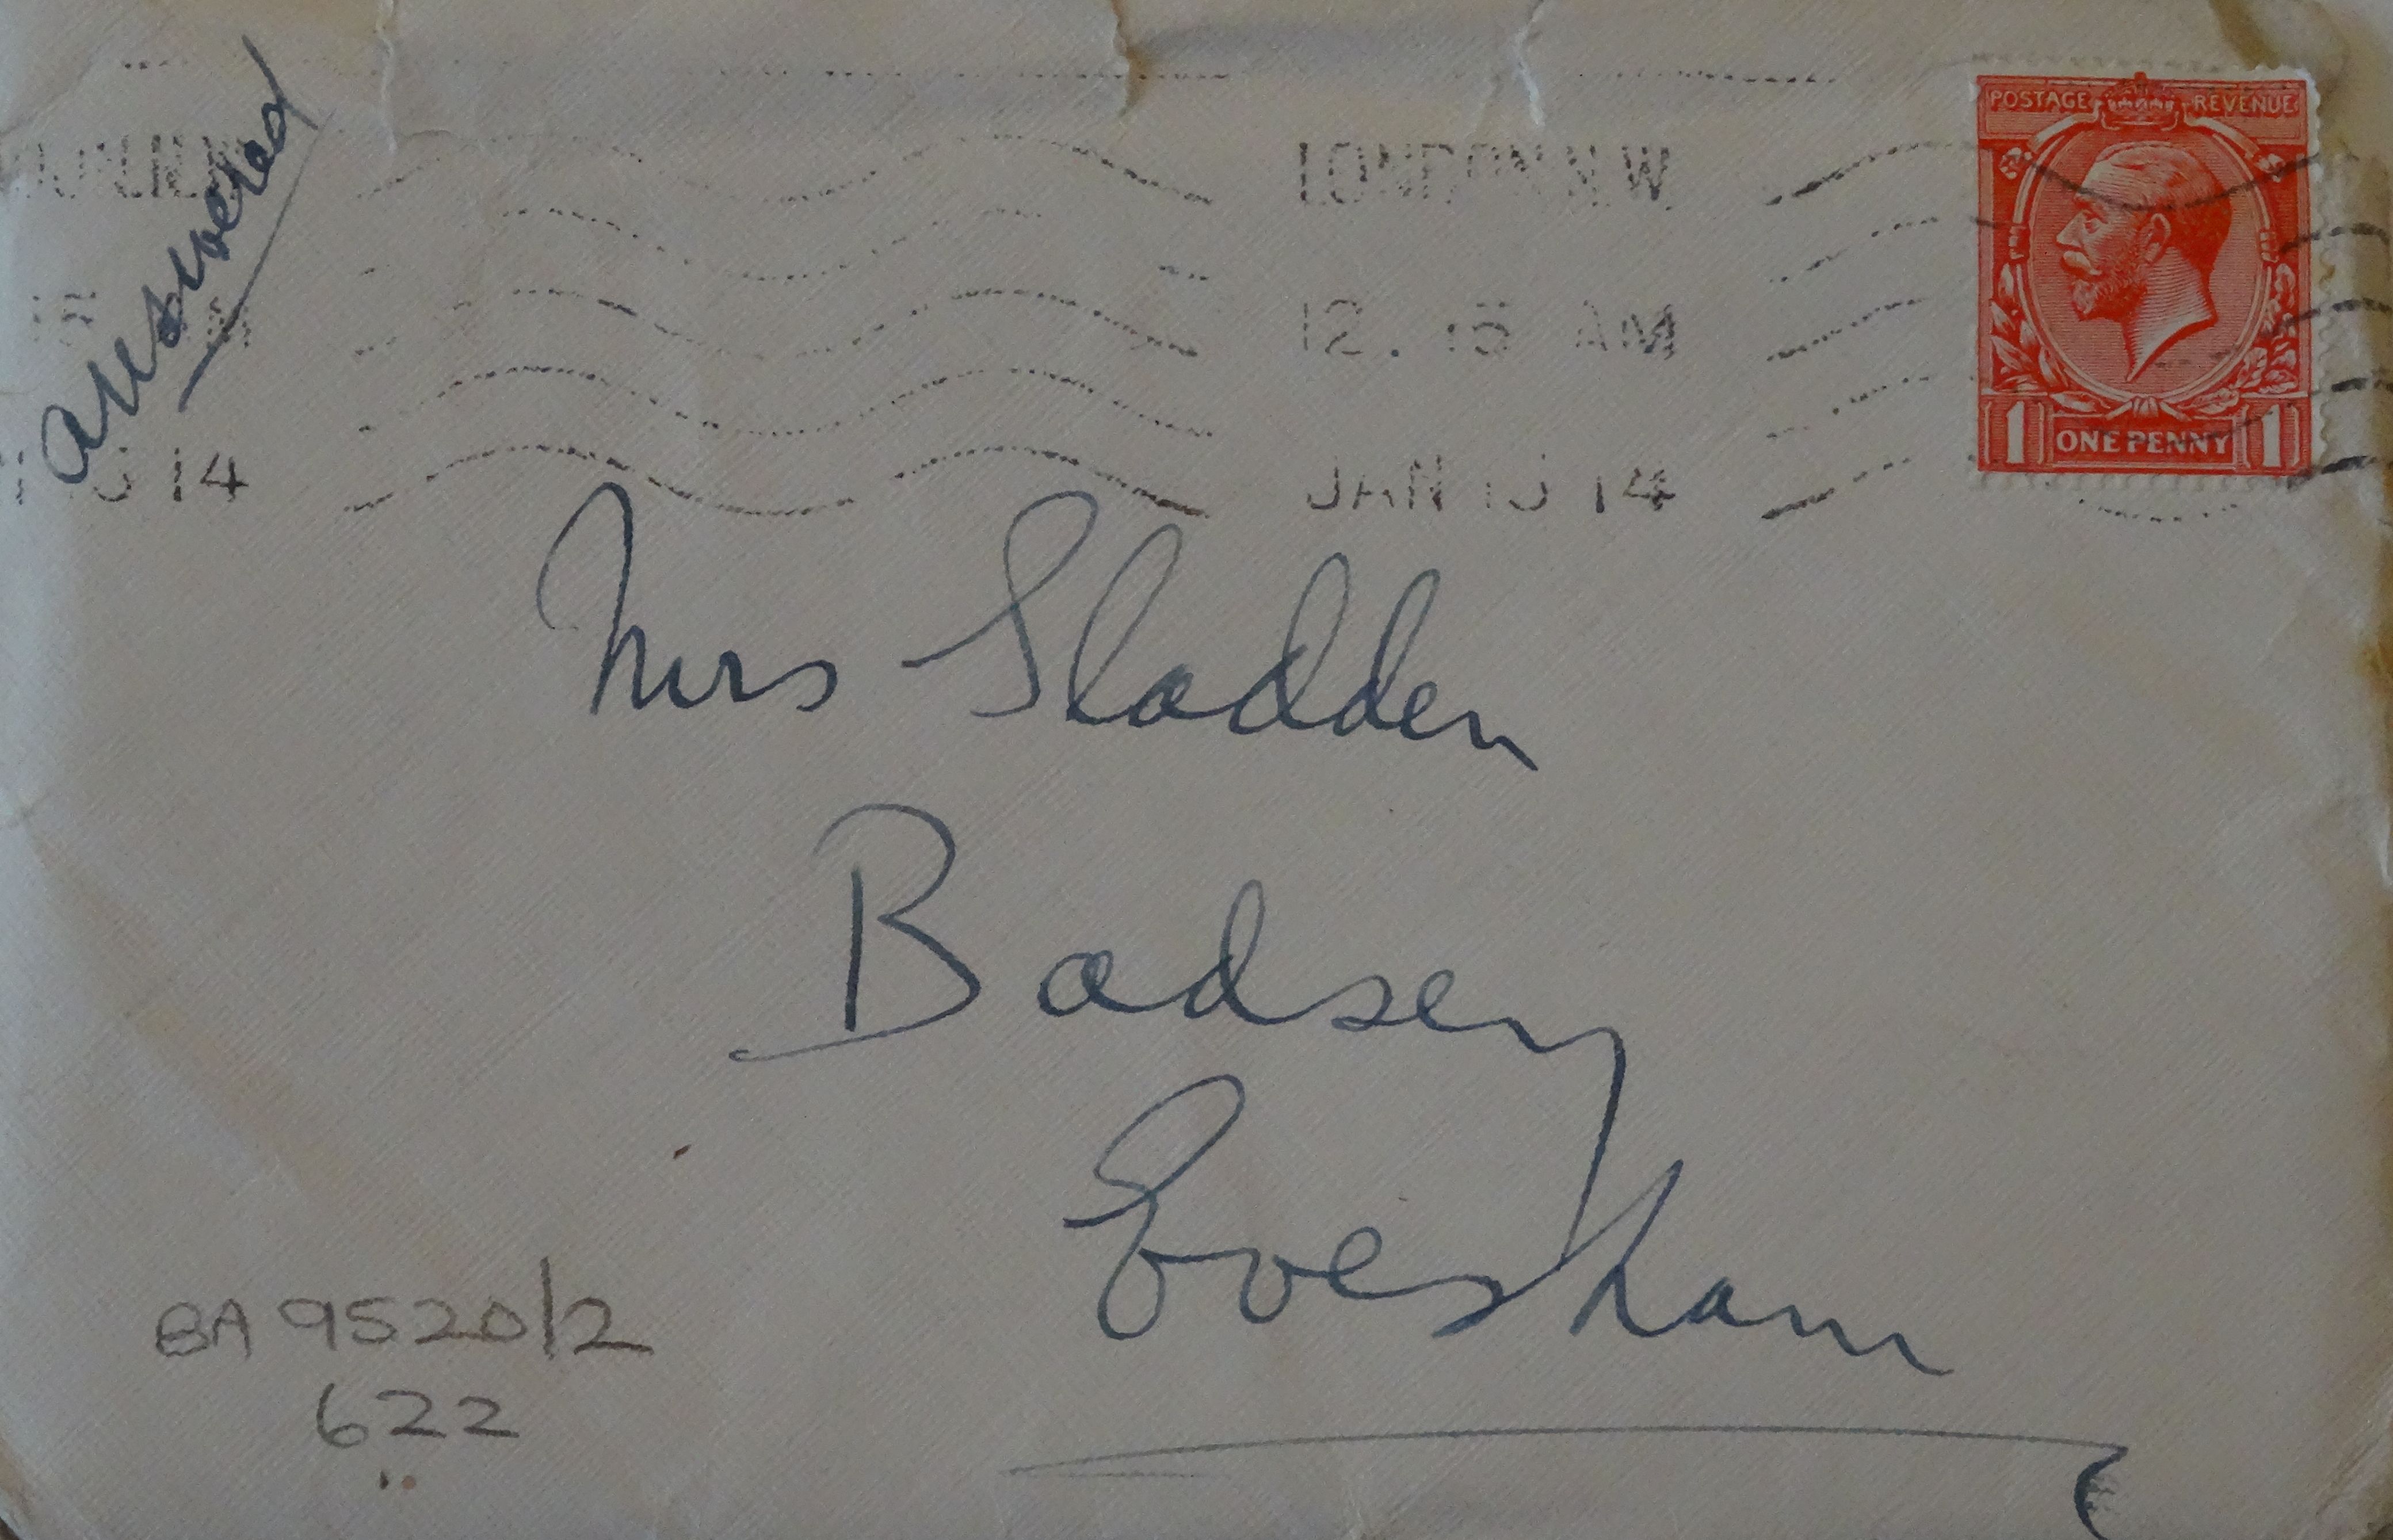 answered
LONDON N.W
12. 15 AM
JAN 14
14
POSTAGE REVENUE
1 ONE PENNY 1
Mrs Sladden
Badsey
Evesham
BA 9520/2
622